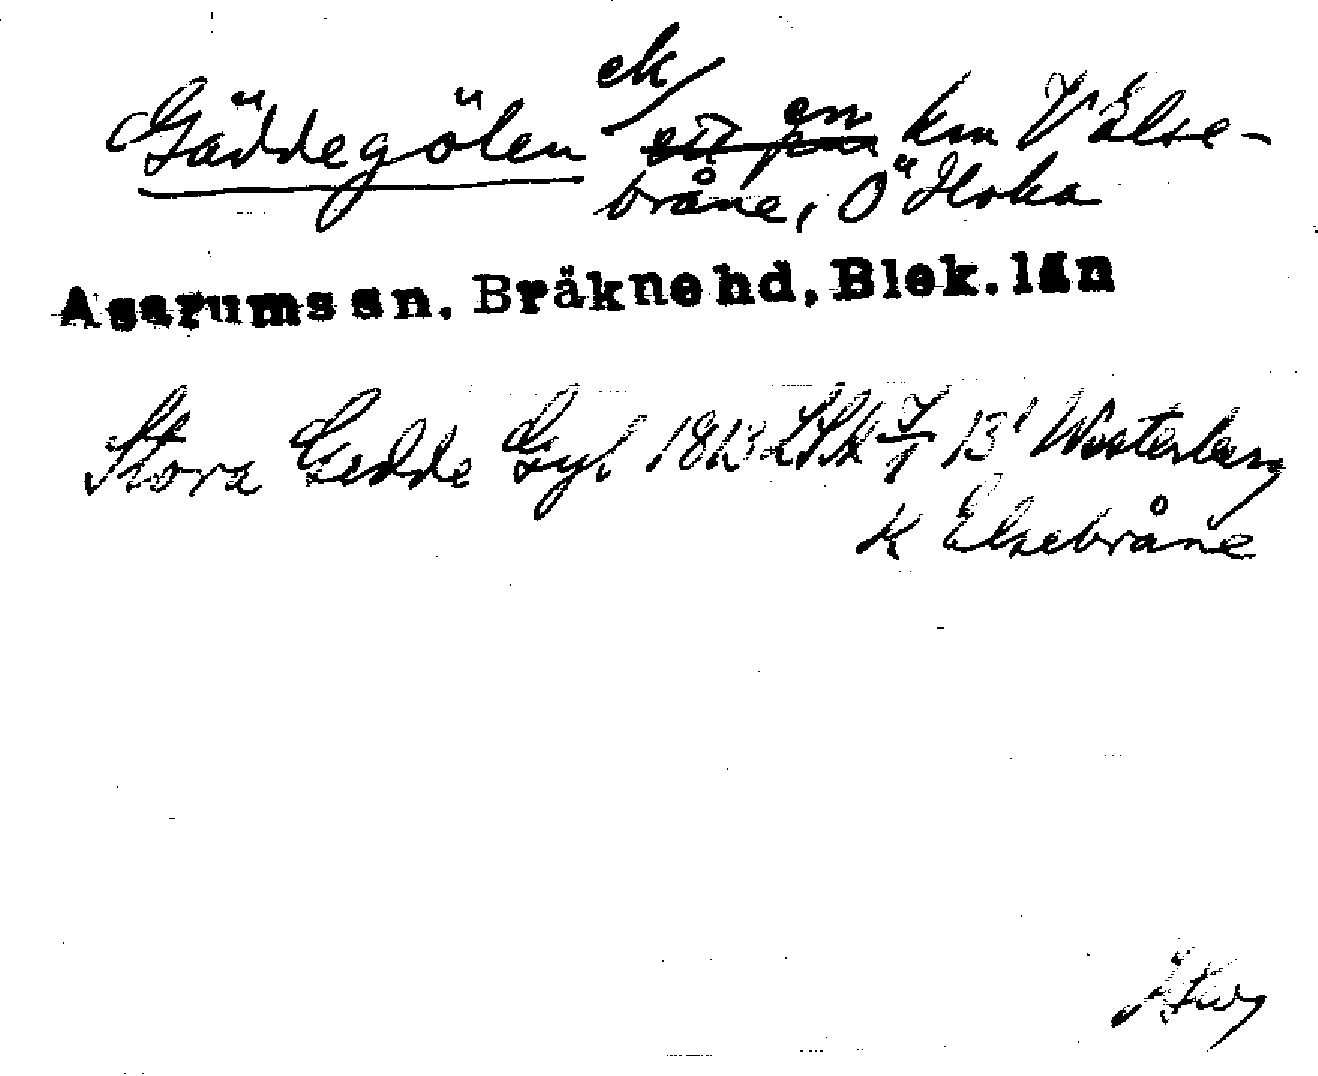 Gäddegölen ek/ en km V Else-
bråne, Ö Hoka
Asarums sn. Bräkne hd. Blek. län
Stora Gedde Gyl 1813 LSk 13' Westerberg
K Elsebråne